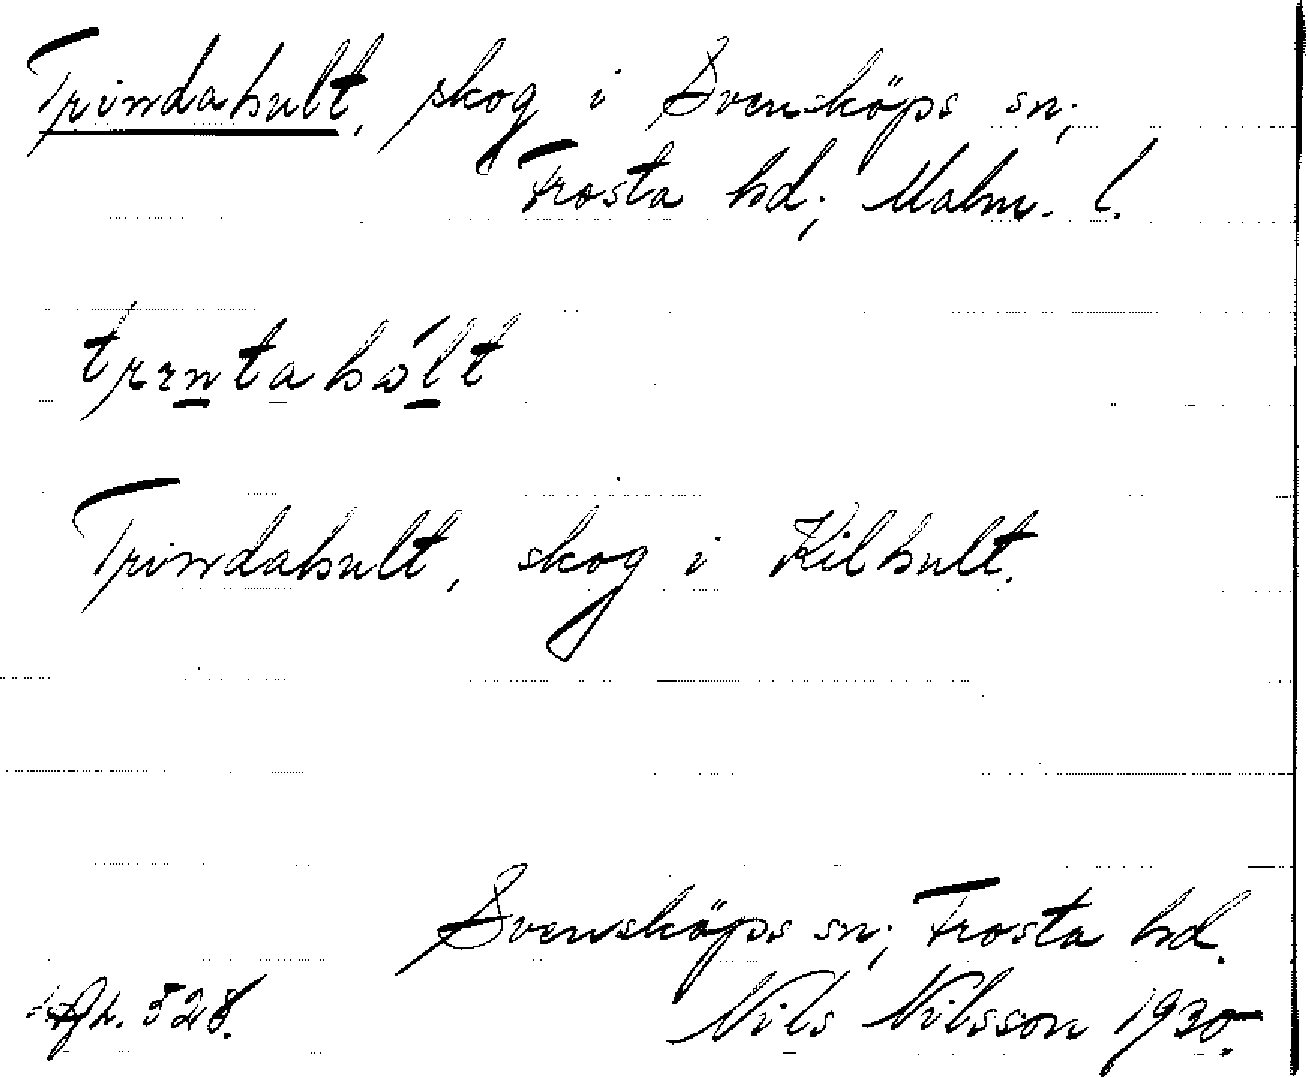 Trindahult, skog i Svensköps sn;
Frosta hd; Malm. l.
trɪntahólt
Trindahult, skog i Kilhult.
Svensköps sn; Frosta hd.
528. Nils Nilsson 1930.